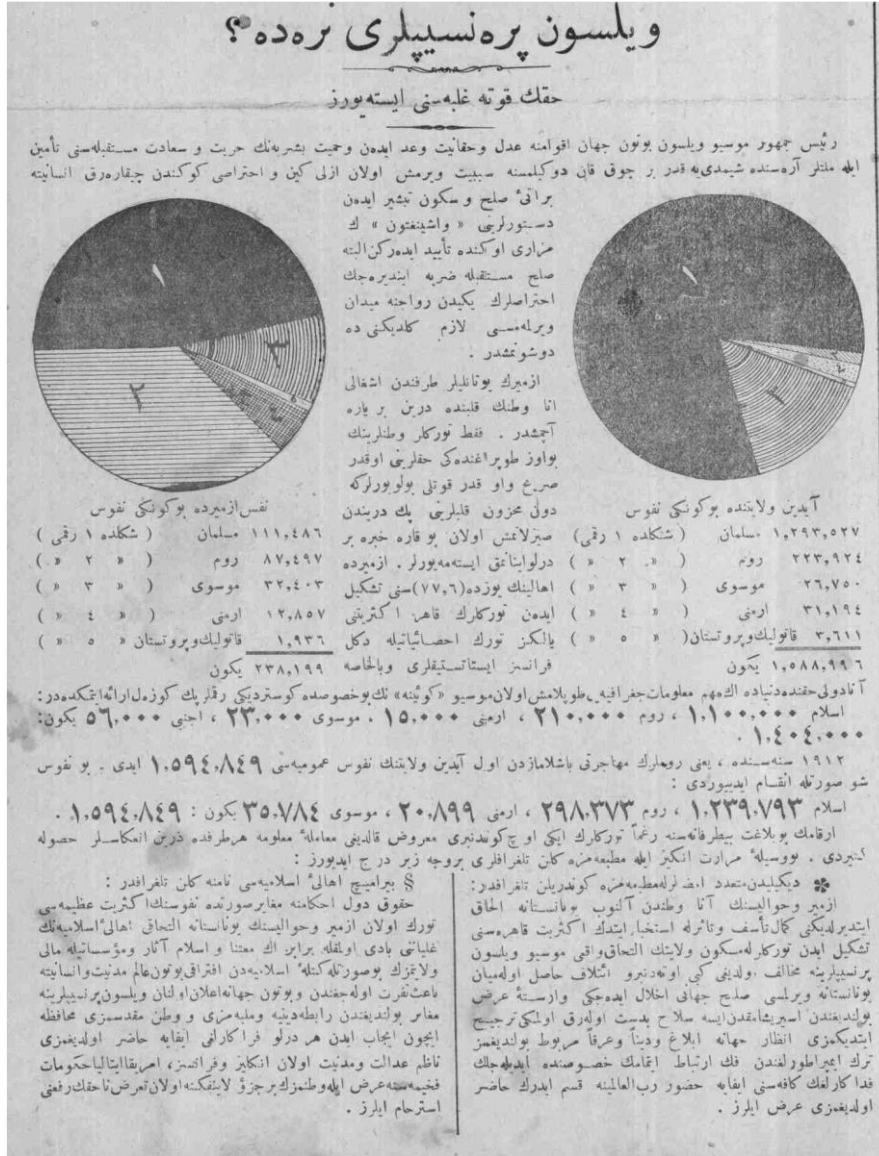 ویلسون پره‌نسیپلری نره‌ده؟
حقك قوته غلبه‌سنی ایسته‌یورز
رئیس جمهور موسیو ویلسون بوتون جهان اقوامنه عدل وحقانیت وعد ایدەن وحمیت بشریه‌نك حریت و سعادت مستقبله‌سنی تأمین
ایله ملتلر آره‌سنده شیمدی‌یه قدر بر چوق قان دوكیلمسنه سببیت ویرمش اولان ازلی كین و احتراصی كوكندن چیقاره‌رق انسانیته
براتئ صلح و سكون تبشیر ایدەن
دستورلرینی « واشینغتون » ك
مزاری اوكنده تأیید ایدەركن البته
صلح مستقبله ضربه ایندیره‌جك
احتراصلرك یكیدن رواجنه میدان
ویرلمه‌مسی لازم كلدیكنی ده
دوشونمشدر .
ازمیرك یونانلیلر طرفندن اشغالی
انا وطنك قلبنده درین بر یاره
آچمشدر . فقط توركلر وطنلرینك
بواوز طوپراغنده‌كی حقلرینی اوقدر
صریح واو قدر قوتلی بولویورلركه
دولی محزون قلبلرینی پك دریندن
صیزلاتمش اولان بو قاره خبره بر
درلو اینانمق ایسته‌مه‌یورلر . ازمیرده
اهالینك یوزده (٧٧,٦) سنی تشكیل
ایدەن توركلرك قاهر اكثریتنی
یالكز تورك احصائیاتیله دكل
فرانسز ایستاتستیقلری وبالخاصه
١
٢
٣
٤
٥
آیدین ولایتنده بوكونكی نفوس
١,٢٩٣,٥٢٧ مسلمان ( شكلده ١ رقمی )
٢٢٣,٩٢٤ روم ( « ٢ « )
٢٦,٧٥٠ موسوی ( « ٣ « )
٣١,١٩٤ ارمنی ( « ٤ « )
٣,٦١١ قاتولیك وپروتستان ( « ٥ « )
١,٥٨٨,٩٩٦ یكون
١
٢
٣
٤
٥
نفس ازمیرده بوكونكی نفوس
١١١,٤٨٦ مسلمان ( شكلده ١ رقمی )
٨٧,٤٩٧ روم ( « ٢ « )
٣٢,٤٠٣ موسوی ( « ٣ « )
١٢,٨٥٧ ارمنی ( « ٤ « )
١,٩٣٦ قاتولیك وپروتستان « ٥ « )
٢٣٨,١٩٩ یكون
آناطولی حقنده دنیاده اك مهم معلومات جغرافیه‌یی طوپلامش اولان موسیو «كوئینه» نك بوخصوصده كوستردیكی رقملر پك كوزەل ارائه ایتمكده‌در :
اسلام ١,١٠٠,٠٠٠ ، روم ٢١٠,٠٠٠ ، ارمنی ١٥,٠٠٠ . موسوی ٢٣,٠٠٠ ، اجنبی ٥٦,٠٠٠ یكون :
١,٤٠٤,٠٠٠ .
١٩١٢ سنه‌سنده ، یعنی روملرك مهاجرتی باشلامازدن اول آیدین ولایتنك نفوس عمومیه‌سی ١,٥٩٤,٨٤٩ ایدی . بو نفوس
شو صورتله انقسام ایدییوردی :
اسلام ١,٢٣٩,٧٩٣ ، روم ٢٩٨,٣٧٣ ، ارمنی ٢٠,٨٩٩ ، موسوی ٣٥,٧٨٤ یكون : ١,٥٩٤,٨٤٩ .
ارقامك بوبلاغت بیطرفانه‌سنه رغماً توركلرك ایكی اوچ كوندنبری معروض قالدیغی معاملهٔ معلومه هر طرفده درین انعكاسلر حصوله
كتیردی . بووسیله‌ٔ مرارت انكیز ایله مطبعه‌مزه كلن تلغرافلری بروجه زیر درج ایدییورز :
✽ دیكیلیدن متعدد امضالرله مطبعه‌مزه كوندریلن تلغرافدر :
ازمیر وحوالیسنك آنا وطندن آلنوب یونانستانه الحاق
ایتدیرلدیكنی كمال تأسف وتأثرله استخبار ایتدك اكثریت قاهره‌سنی
تشكیل ایدن توركلرله مسكون ولایتك التحاق واقی موسیو ویلسون
پرنسیپلرینه مخالف اولدیغی كبی اوته‌دنبرو ائتلاف حاصل اوله‌میان
یونانستانه ویرلمسی صلح جهانی اخلال ایده‌جكی وارسته‌ٔ عرض
بولندیغندن اسیر یشامقدن ایسه سلاح بدست اوله‌رق اولمكی ترجیح
ایتدیكمزی انظار جهانه ابلاغ ودیناً وعرفاً مربوط بولندیغمز
ترك ایمپراطورلغندن فك ارتباط ایتمامك خصوصنده ایدیله‌جك
فداكارلغك كافه‌سنی ایفایه حضور رب العالمینه قسم ایدرك حاضر
اولدیغمزی عرض ایلرز .
§ بیرامیچ اهالئ اسلامیه‌سی نامنه كلن تلغرافدر :
حقوق دول احكامنه مغایر صورتده نفوسنك اكثریت عظیمه‌سی
تورك اولان ازمیر وحوالیسنك یونانستانه التحاقی اهالئ اسلامیه‌نك
غلیاننی بادی اولمقله برابر اك معتنا و اسلام آثار ومؤسساتیله مالی
ولایتمزك بوصورتله كتله‌ٔ اسلامیه‌دن افتراقی بوتون عالم مدنیت وانسانیته
باعث نفرت اوله‌جغندن و بوتون جهانه اعلان اولنان ویلسون پرنسیپلرینه
مغایر بولندیغندن رابطه‌ٔ دینیه وملیه‌مزی و وطن مقدسمزی محافظه
ایچون ایجاب ایدن هر درلو فداكارلغی ایفایه حاضر اولدیغمزی
ناظم عدالت ومدنیت اولان انكلیز وفرانسز ، امریقا ایتالیا حكومات
فخیمه‌سنه عرض ایله وطنمزك بر جزؤ لاینفكنه اولان تعرض ناحقك رفعنی
استرحام ایلرز .